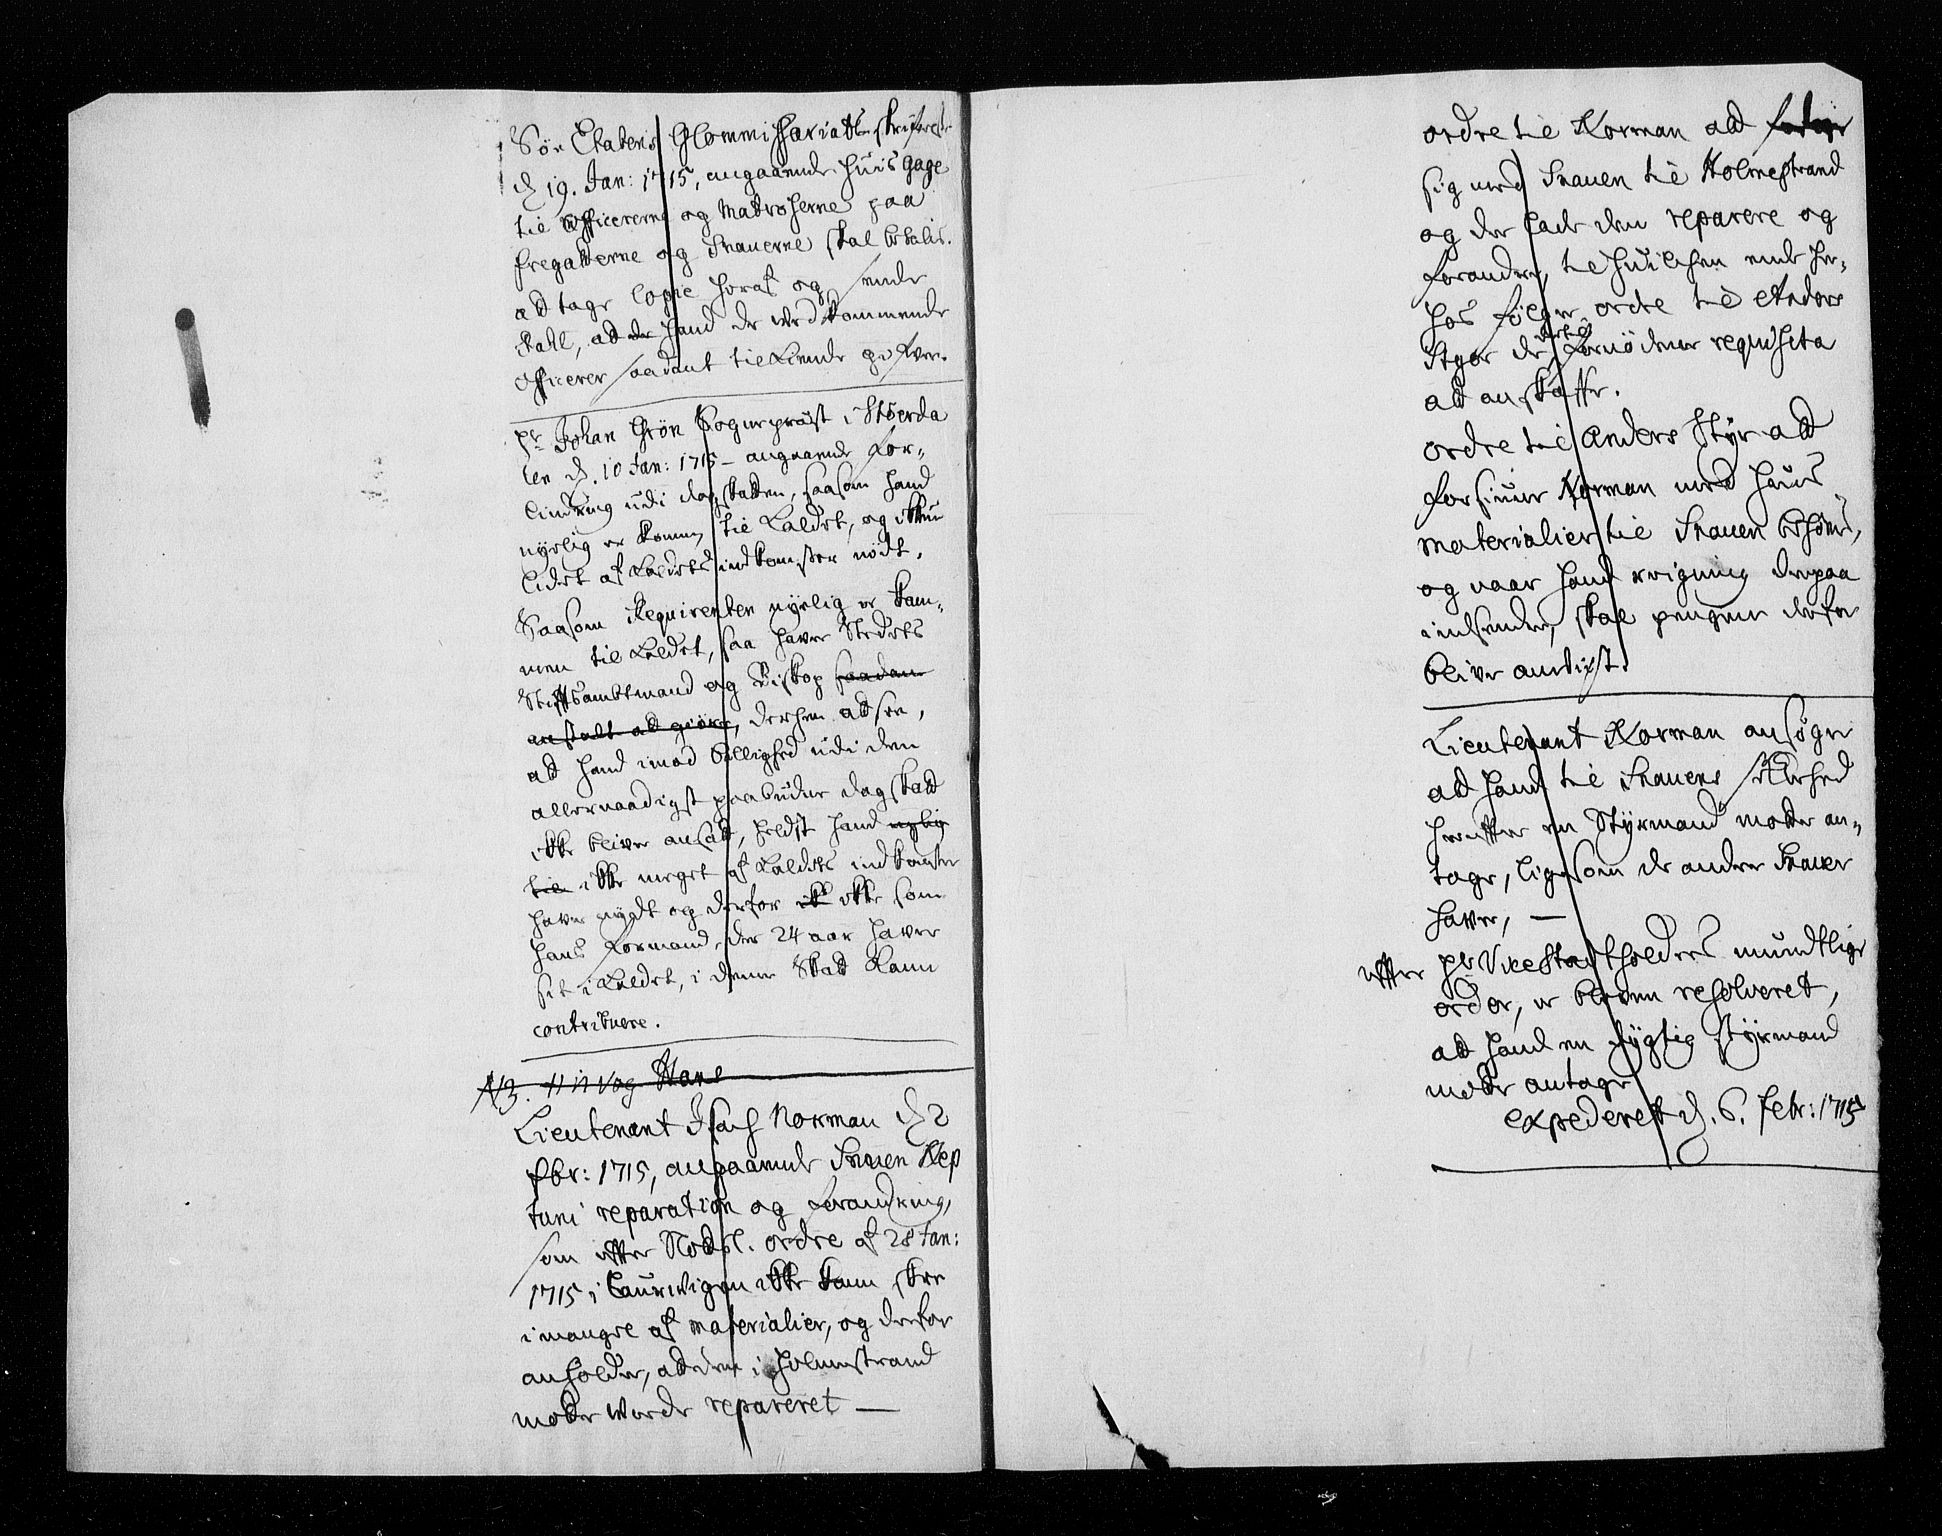 Søe Etatens Commissariats skrifvelse
d. 19. Jan: 1715, angaaende huis gage
til Officererne og Matroserne paa
fregatterne og Snauerne skal betalis.
at tage Copie heraf og sende
Stahl, at hand de vedkommende
Officerer saadant tilkiende gifver.
hr Johan Grøn Sogneprest i Størda
len d. 10 Jan: 1715 - angaaende for-
lindring udi dagskatten, saasom hand
nylig er kommen til Kaldet, og ikkun
lidet af Kaldets indkomster nødt.
Saasom Requirenten nylig er kom-
men til Kaldet, saa haver Stedets
Stiftsambtmand og Biskop saadan
anstalt at giøre, derhen at see,
at hand imod billighed udi den
allernaadigst paabudne dagskatt
ikke bliver ansatt, helst hand nylig
til ikke meget af Kaldets indkomster
haver nydt og derfor ikk ikke som
hans Formand, der 24 aar haver
sit i Kaldet, i denne Skatt kann
contribuere.
NB.
Lieutenant Isach Norman d. 2
fbr: 1715, angaaende Snauen Nep
tuni reparation og forandring,
som efter Notpl. ordre af 28 Jan:
1715 i Laurwigen ikke kann skee
i mangel af materialier, og derfor
anholder, at den i Holmestrand
motte worde repareret —
ordre til Norman att
sig med Snauen til Holmestrand
og der lade den reparere og
forandre, til hvilchen ende her-
hos følger ordre til Anders
Styer de dertil fornødene requisita
att anskaffe.
Ordre til Anders Styr att
forsiune Norman med huis
materialier til Snauen behøves,
og naar hand reigning derpaa
indsender, skal pengene derfor
blive anvist.
Lieutenant Norman ansøger
att hand til Snauens sikerhed
herefter en Styrmand motte an-
tage, ligesom de andre Snauer
haver, —
efter hr Vicestatholders mundtlige
order, er bleven resolveret,
att hand en dygtig Styrmand
motte antage
expederet d. 6. febr: 1715